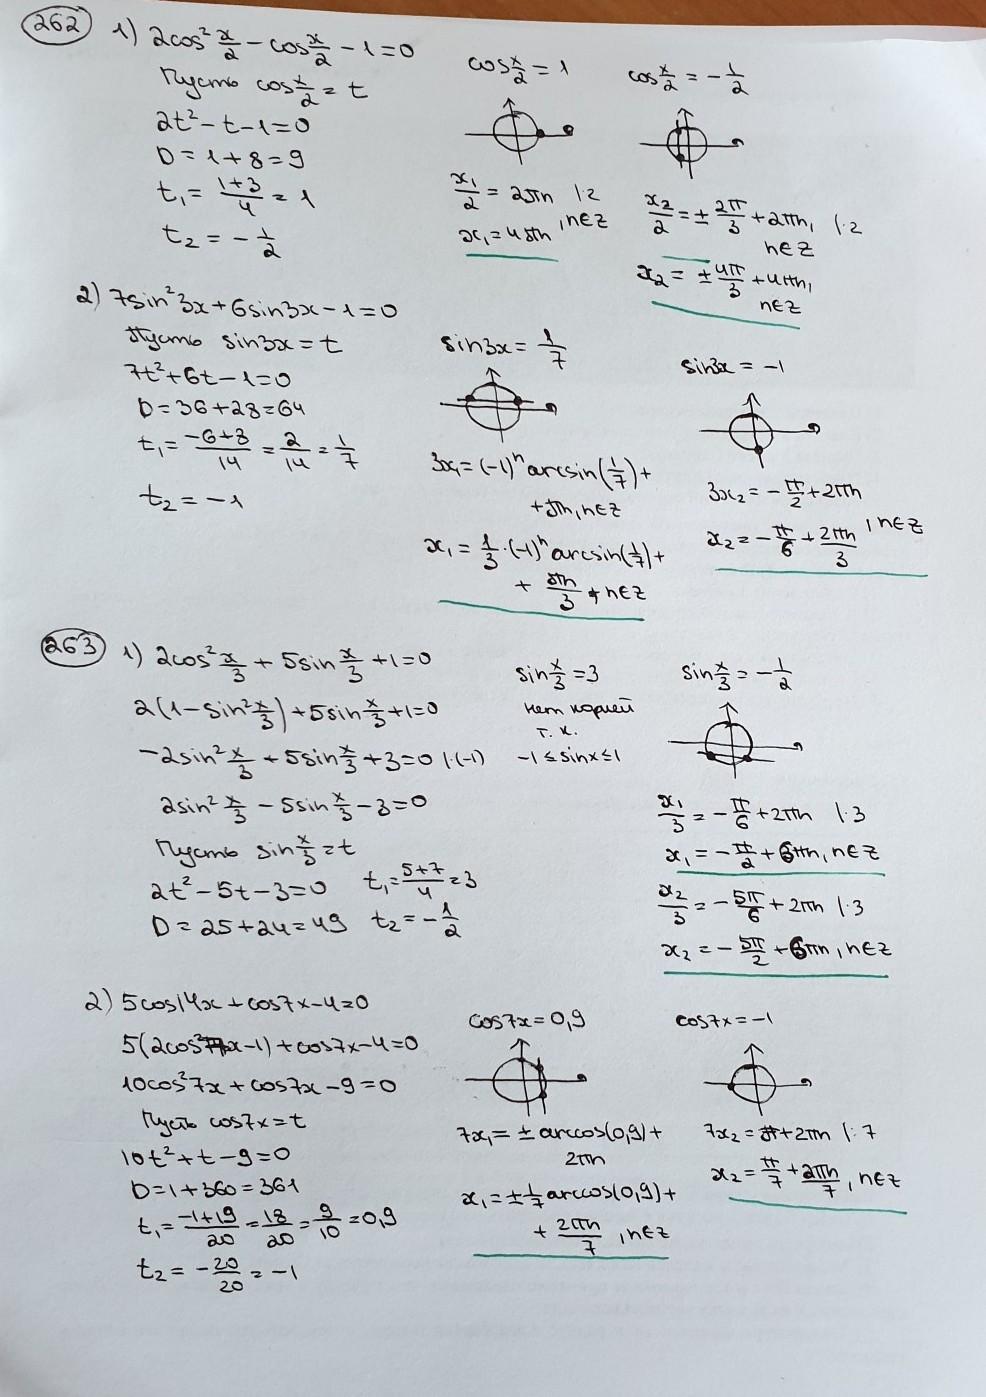 262 1) 2cos² x/2 − cos x/2 − 1 = 0
Пусть cos x/2 = t
2t² − t − 1 = 0
D = 1 + 8 = 9
t₁ = (1+3)/4 = 1
t₂ = −1/2
cos x/2 = 1
x₁/2 = 2πn |·2
x₁ = 4πn, n∈Z
cos x/2 = −1/2
x₂/2 = ± 2π/3 + 2πn, |·2
n∈Z
x₂ = ± 4π/3 + 4πn,
n∈Z
2) 7sin²3x + 6sin3x − 1 = 0
Пусть sin3x = t
7t² + 6t − 1 = 0
D = 36 + 28 = 64
t₁ = (−6+8)/14 = 2/14 = 1/7
t₂ = −1
sin3x = 1/7
3x₁ = (−1)ⁿ arcsin(1/7) +
+ πn, n∈Z
x₁ = 1/3 · (−1)ⁿ arcsin(1/7) +
+ πn/3, n∈Z
sin3x = −1
3x₂ = −π/2 + 2πn
x₂ = −π/6 + 2πn/3, n∈Z
263 1) 2cos² x/3 + 5sin x/3 + 1 = 0
2(1 − sin² x/3) + 5sin x/3 + 1 = 0
−2sin² x/3 + 5sin x/3 + 3 = 0 |·(−1)
2sin² x/3 − 5sin x/3 − 3 = 0
Пусть sin x/3 = t
2t² − 5t − 3 = 0
D = 25 + 24 = 49
t₁ = (5+7)/4 = 3
t₂ = −1/2
sin x/3 = 3
нет корней
т. к.
−1 ≤ sinx ≤ 1
sin x/3 = −1/2
x₁/3 = −π/6 + 2πn |·3
x₁ = −π/2 + 6πn, n∈Z
x₂/3 = −5π/6 + 2πn |·3
x₂ = −5π/2 + 6πn, n∈Z
2) 5cos14x + cos7x − 4 = 0
5(2cos²7x − 1) + cos7x − 4 = 0
10cos²7x + cos7x − 9 = 0
Пусть cos7x = t
10t² + t − 9 = 0
D = 1 + 360 = 361
t₁ = (−1+19)/20 = 18/20 = 9/10 = 0,9
t₂ = −20/20 = −1
cos7x = 0,9
7x₁ = ± arccos(0,9) +
2πn
x₁ = ± 1/7 arccos(0,9) +
+ 2πn/7, n∈Z
cos7x = −1
7x₂ = π + 2πn |: 7
x₂ = π/7 + 2πn/7, n∈Z